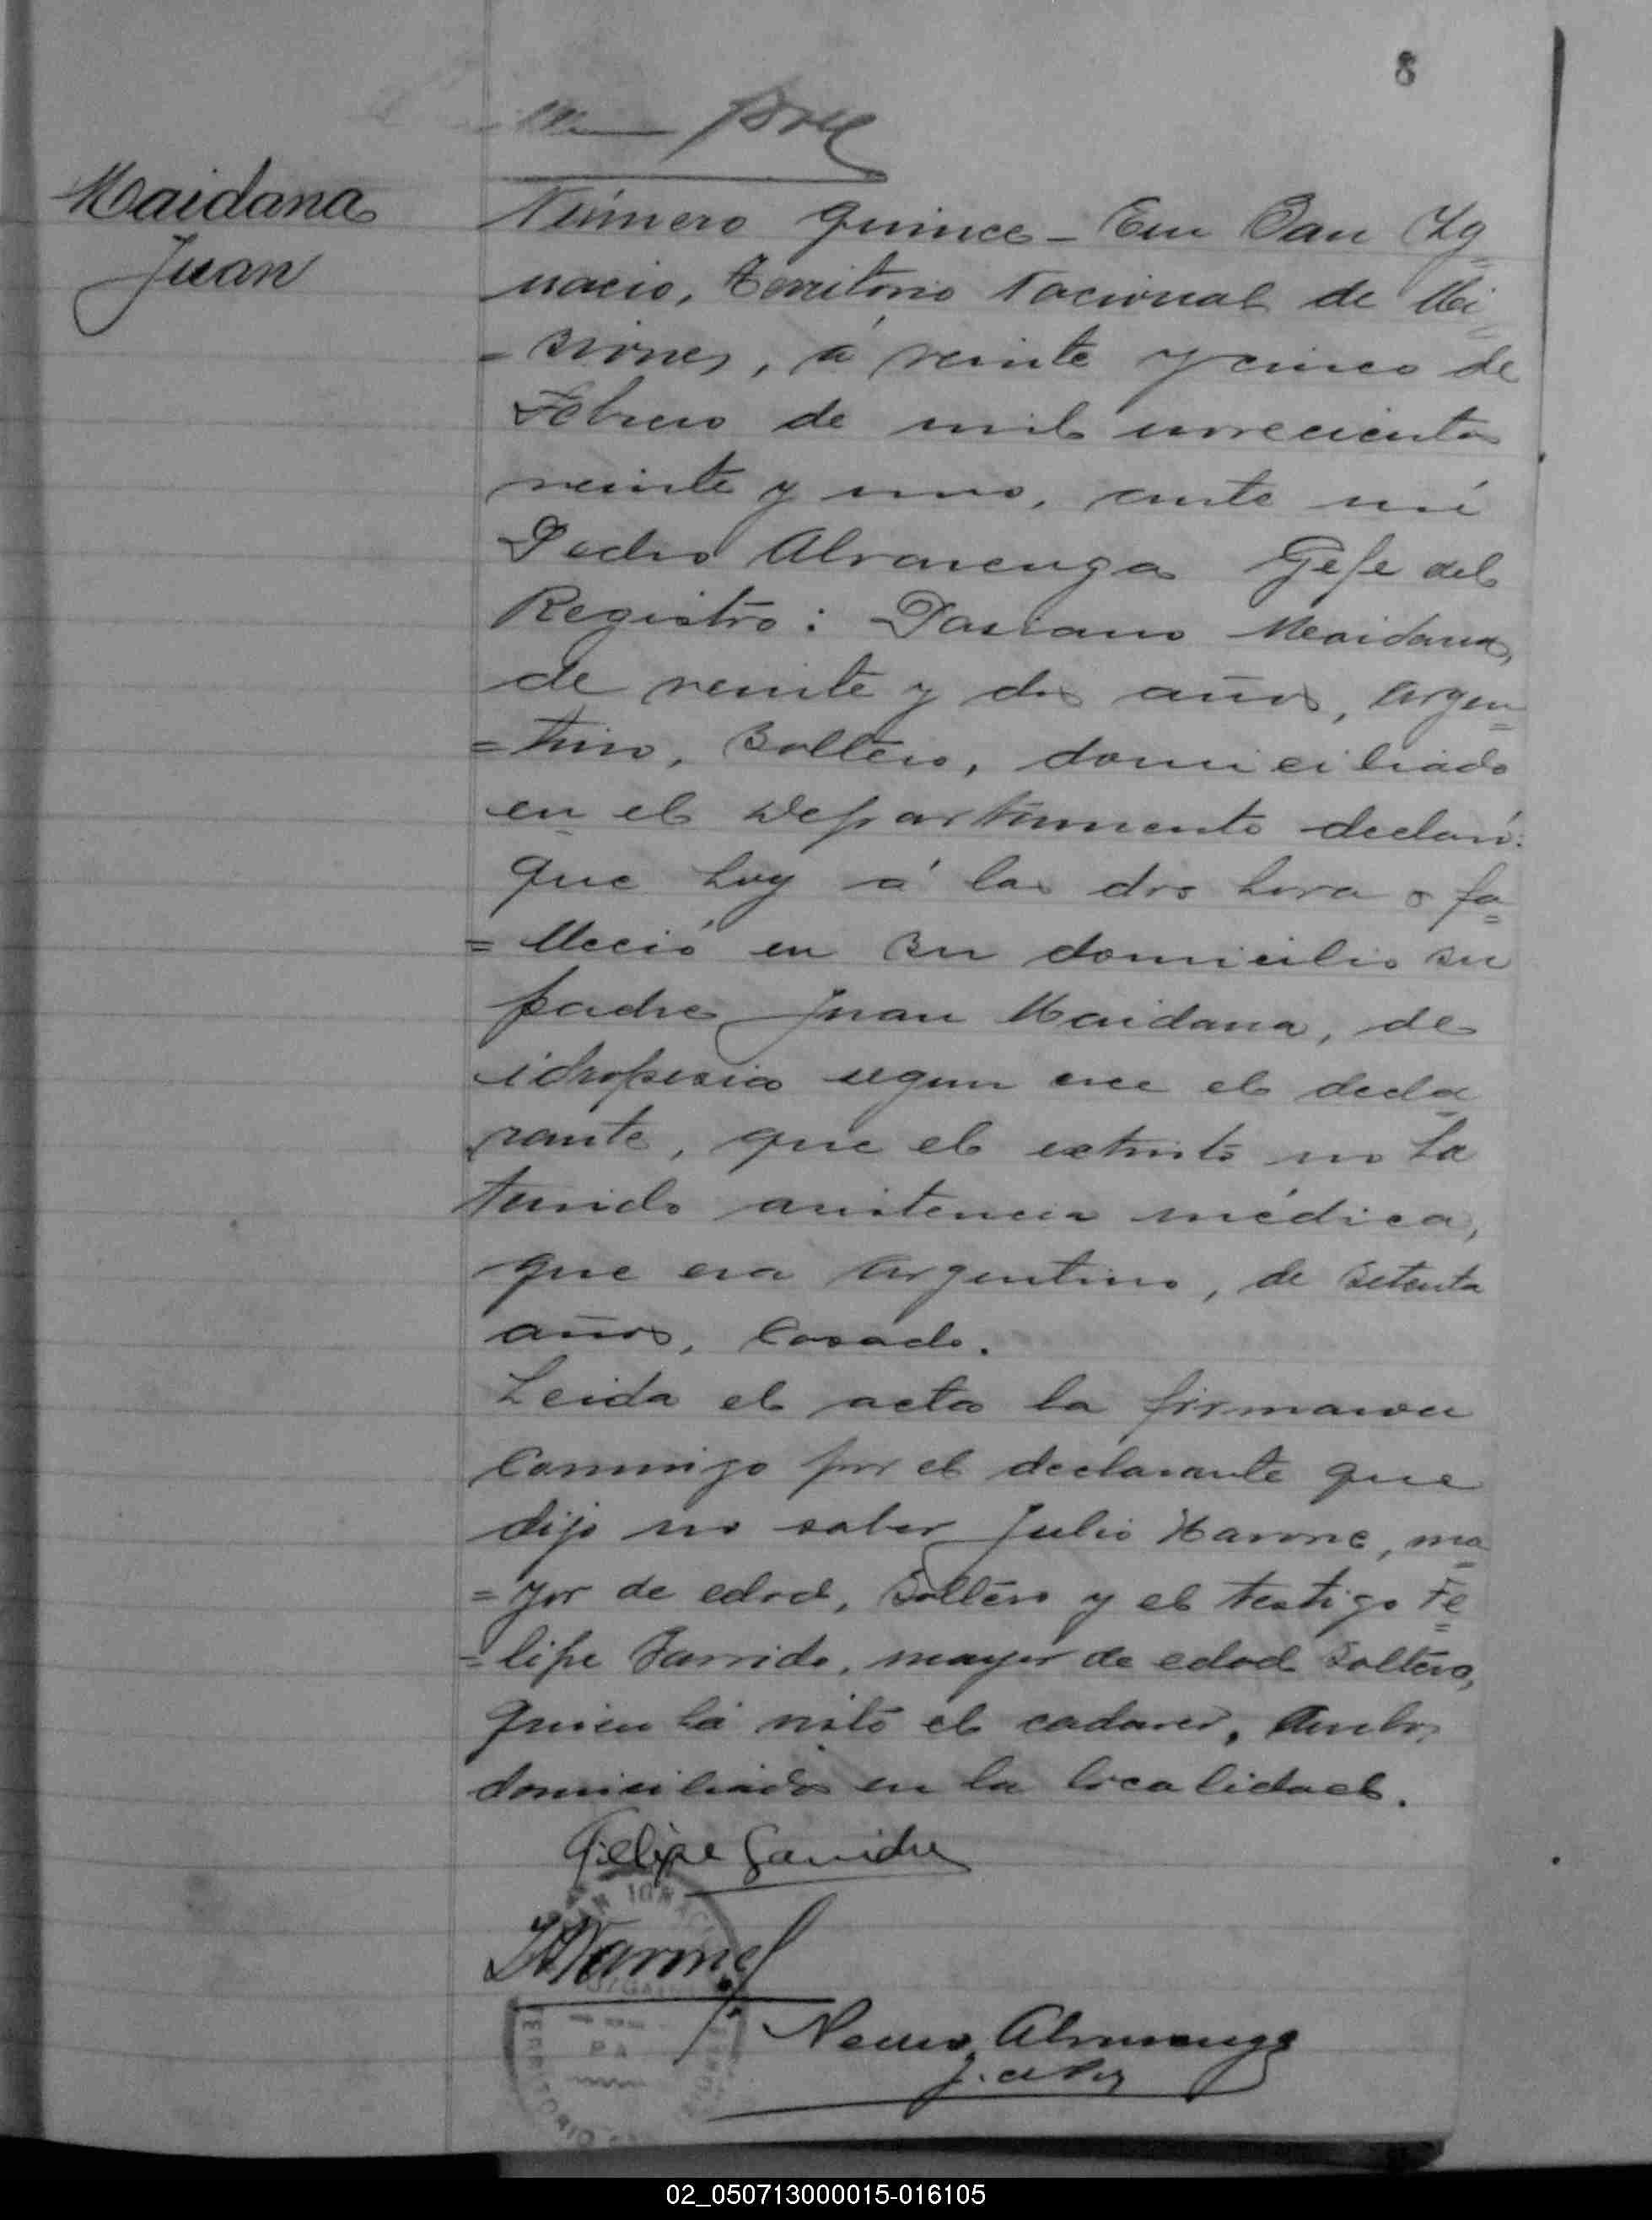 8
Maidana
Juan
Número quince - En San Ig
nacio, Territorio Nacional de Mi
= siones, á veinte y cinco de
Febrero de mil novecientos
veinte y uno, ante mí
Pedro Alvarenga Gefe del
Registro: Maidana,
de veinte y dos años, argen
= tino, soltero, domiciliado
en el Departamento declaró:
que hoy á las dos horas fa
= lleció en su domicilio su
padre Juan Maidana, de
idropesia segun cree el decla
rante, que el extinto no ha
tenido asistencia médica,
que era argentino, de setenta
años, casado.
Leida el acta la firmaron
conmigo por el declarante que
dijo no saber Julio, ma
= yor de edad, soltero y el testigo Fe
= lipe Garrido, mayor de edad soltero,
quien há visto el cadaver, ambos
domiciliados en la localidad.
Felipe Garrido
Alvarenga
02_050713000015-016105